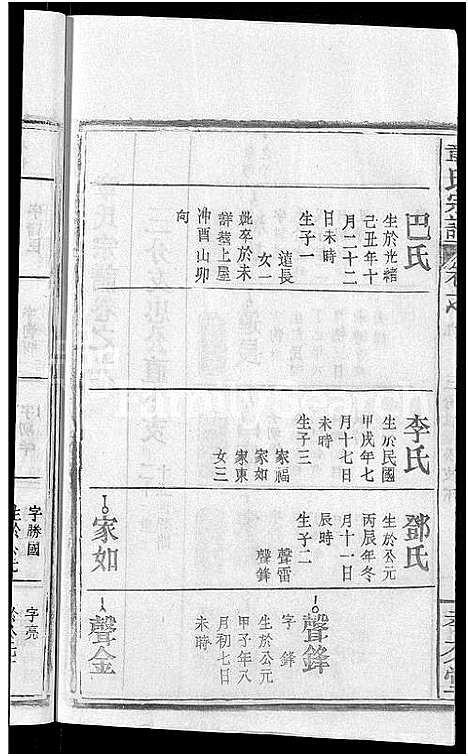 氏宗譜
巴氏
生於光緒
己丑年十
月二十二
日未時
生子一
遠長
女一
妣卒於未
詳葬上屋
沖酉山卯
向
李氏
生於民國
甲戌年七
月十七日
未時
生子三
家福
家如
家東
女三
鄧氏
生於公元
丙辰年冬
月十一日
辰時
生子二
聲雷
聲鋒
聲鋒
字鋒
生於公元
甲子年八
月初七日
未時
家如
聲金
字勝國
生於公元
字亮